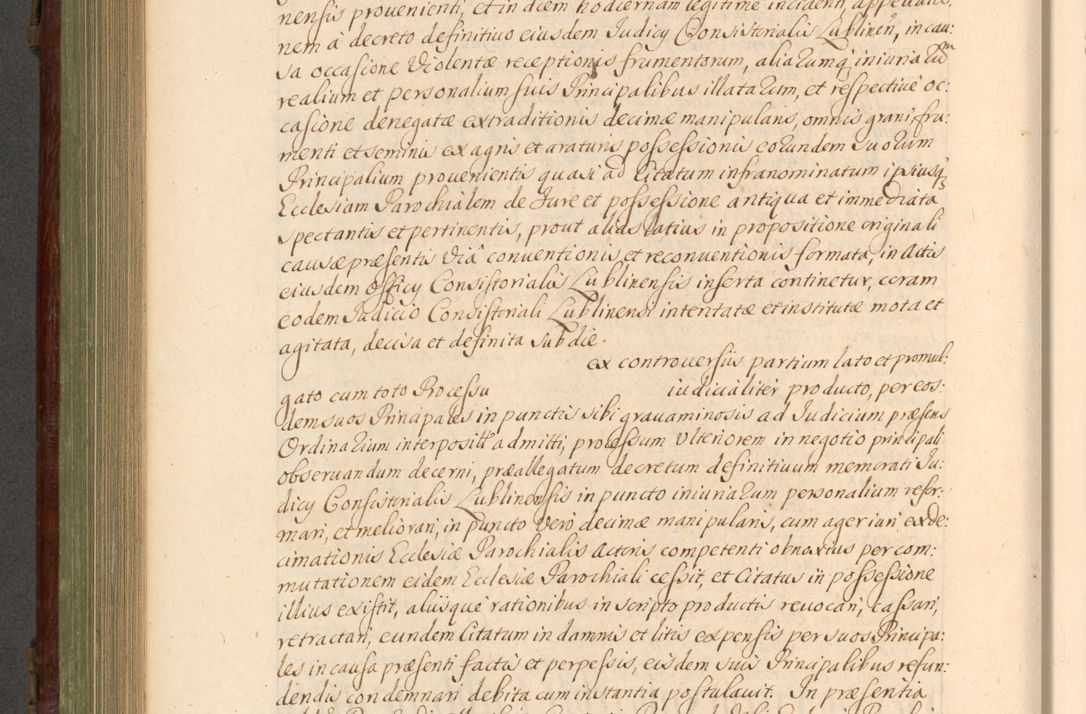 nensis provenienti, et in diem hodiernam legitime incidenti, appellatio:
nem â decreto definitivo eiusdem Judicy Consistorialis Lublinen, in cau:
sa occasione Violentæ receptionis frumentorum, aliarumq iniuriarum
realium et personalium suis Principalibus illatarum, et respective oc:
casione denegatæ extraditionis decimæ manipularis, omnis grani, fru:
menti et seminis ex agris et araturis possessionis eorundem suorum
Principalium provenientis quasi ad Citatum infranominatum ipsiusq
Ecclesiam Parochialem de Jure et possessione antiqua et immediata
spectantis et pertinentis, prout alias latius in propositione originali
causæ præsentis Viâ conventionis et reconventionis formata, in Actis
eiusdem Officy Consistorialis Lublinensis inserta continetur, coram
eodem Judicio Consistoriali Lublinensi intentatæ et institutæ mota et
agitata, decisa et definita sub die.
ex controversiis partium lato et promul:
gato cum toto Processu iudicialiter producto, per eos:
dem suos Principales in punctis sibi gravaminosis ad Judicium præsens
Ordinarium interposit admitti, processum Ulteriorem in negotio principali
observandum decerni, præallegatum decretum definitivum memorati Ju:
dicy Consistorialis Lublinensis in puncto iniuriarum personalium refor:
mari, et meliorari, in puncto vero decimæ manipularis, cum ager iuri exde:
cimationis Ecclesiæ Parochialis Actoris competenti obnoxius per com:
mutationem eidem Ecclesiæ Parochiali cessit, et Citatus in possessione
illius existit, aliisque rationibus in scripto productis revocari, cassari,
retractari, eundem Citatum in damnis et litis expensis per suos Principa:
les in causa præsenti factis et perpessis, eisdem suis Principalibus refun:
dendis condemnari debita cum instantia postulavit. In præsentia